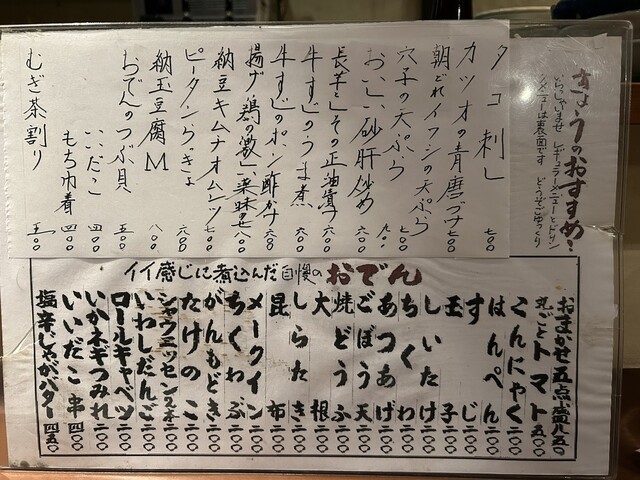 きょうのおすすめ!
いらっしゃいませ レギュラーメニューとドリンク
メニューは裏面です どうぞごゆっくり
タコ刺し 七〇〇
カツオの青唐づけ 七〇〇
朝どれイワシの天ぷら
穴子の天ぷら 七〇〇
おいしい砂肝炒め 九〇〇
長芋としその正油漬け 六〇〇
牛すじのうま煮 六〇〇
牛すじのポン酢かけ 六〇〇
揚げ鶏の 薬味のせ 八〇〇
納豆キムチオムレツ 七〇〇
ピータンらっきょ 六〇〇
納豆玉豆腐M 八〇〇
おでんのつぶ貝 五〇〇
いいだこ 四〇〇
もち巾着 四〇〇
むぎ茶割り 五〇〇
イイ感じに煮込んだ自慢のおでん
おまかせ五点盛八五〇
丸ごとトマト五〇〇
こんにゃく二〇〇
はんぺん二〇〇
すじ二〇〇
玉子二〇〇
しいたけ二〇〇
ちくわ二〇〇
あつあげ二〇〇
ごぼう天二〇〇
焼どうふ二〇〇
大根二〇〇
しらたき二〇〇
昆布二〇〇
メークイン二〇〇
ちくわぶ二〇〇
がんもどき二〇〇
たけのこ二〇〇
シャウエッセン2本二〇〇
いわしだんご二〇〇
ロールキャベツ二〇〇
いかネギつみれ二〇〇
いいだこ串四〇〇
塩辛じゃがバター四五〇